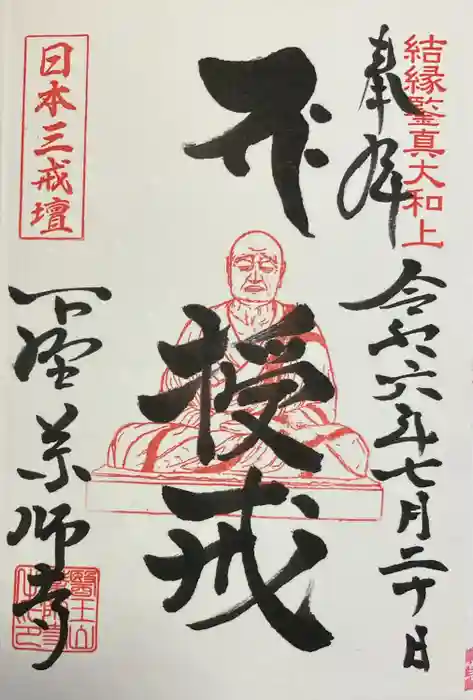 結縁鑒真大和上
奉拝
令和六年七月二十日
授戒
日本三戒壇
下野薬師寺
醫王山